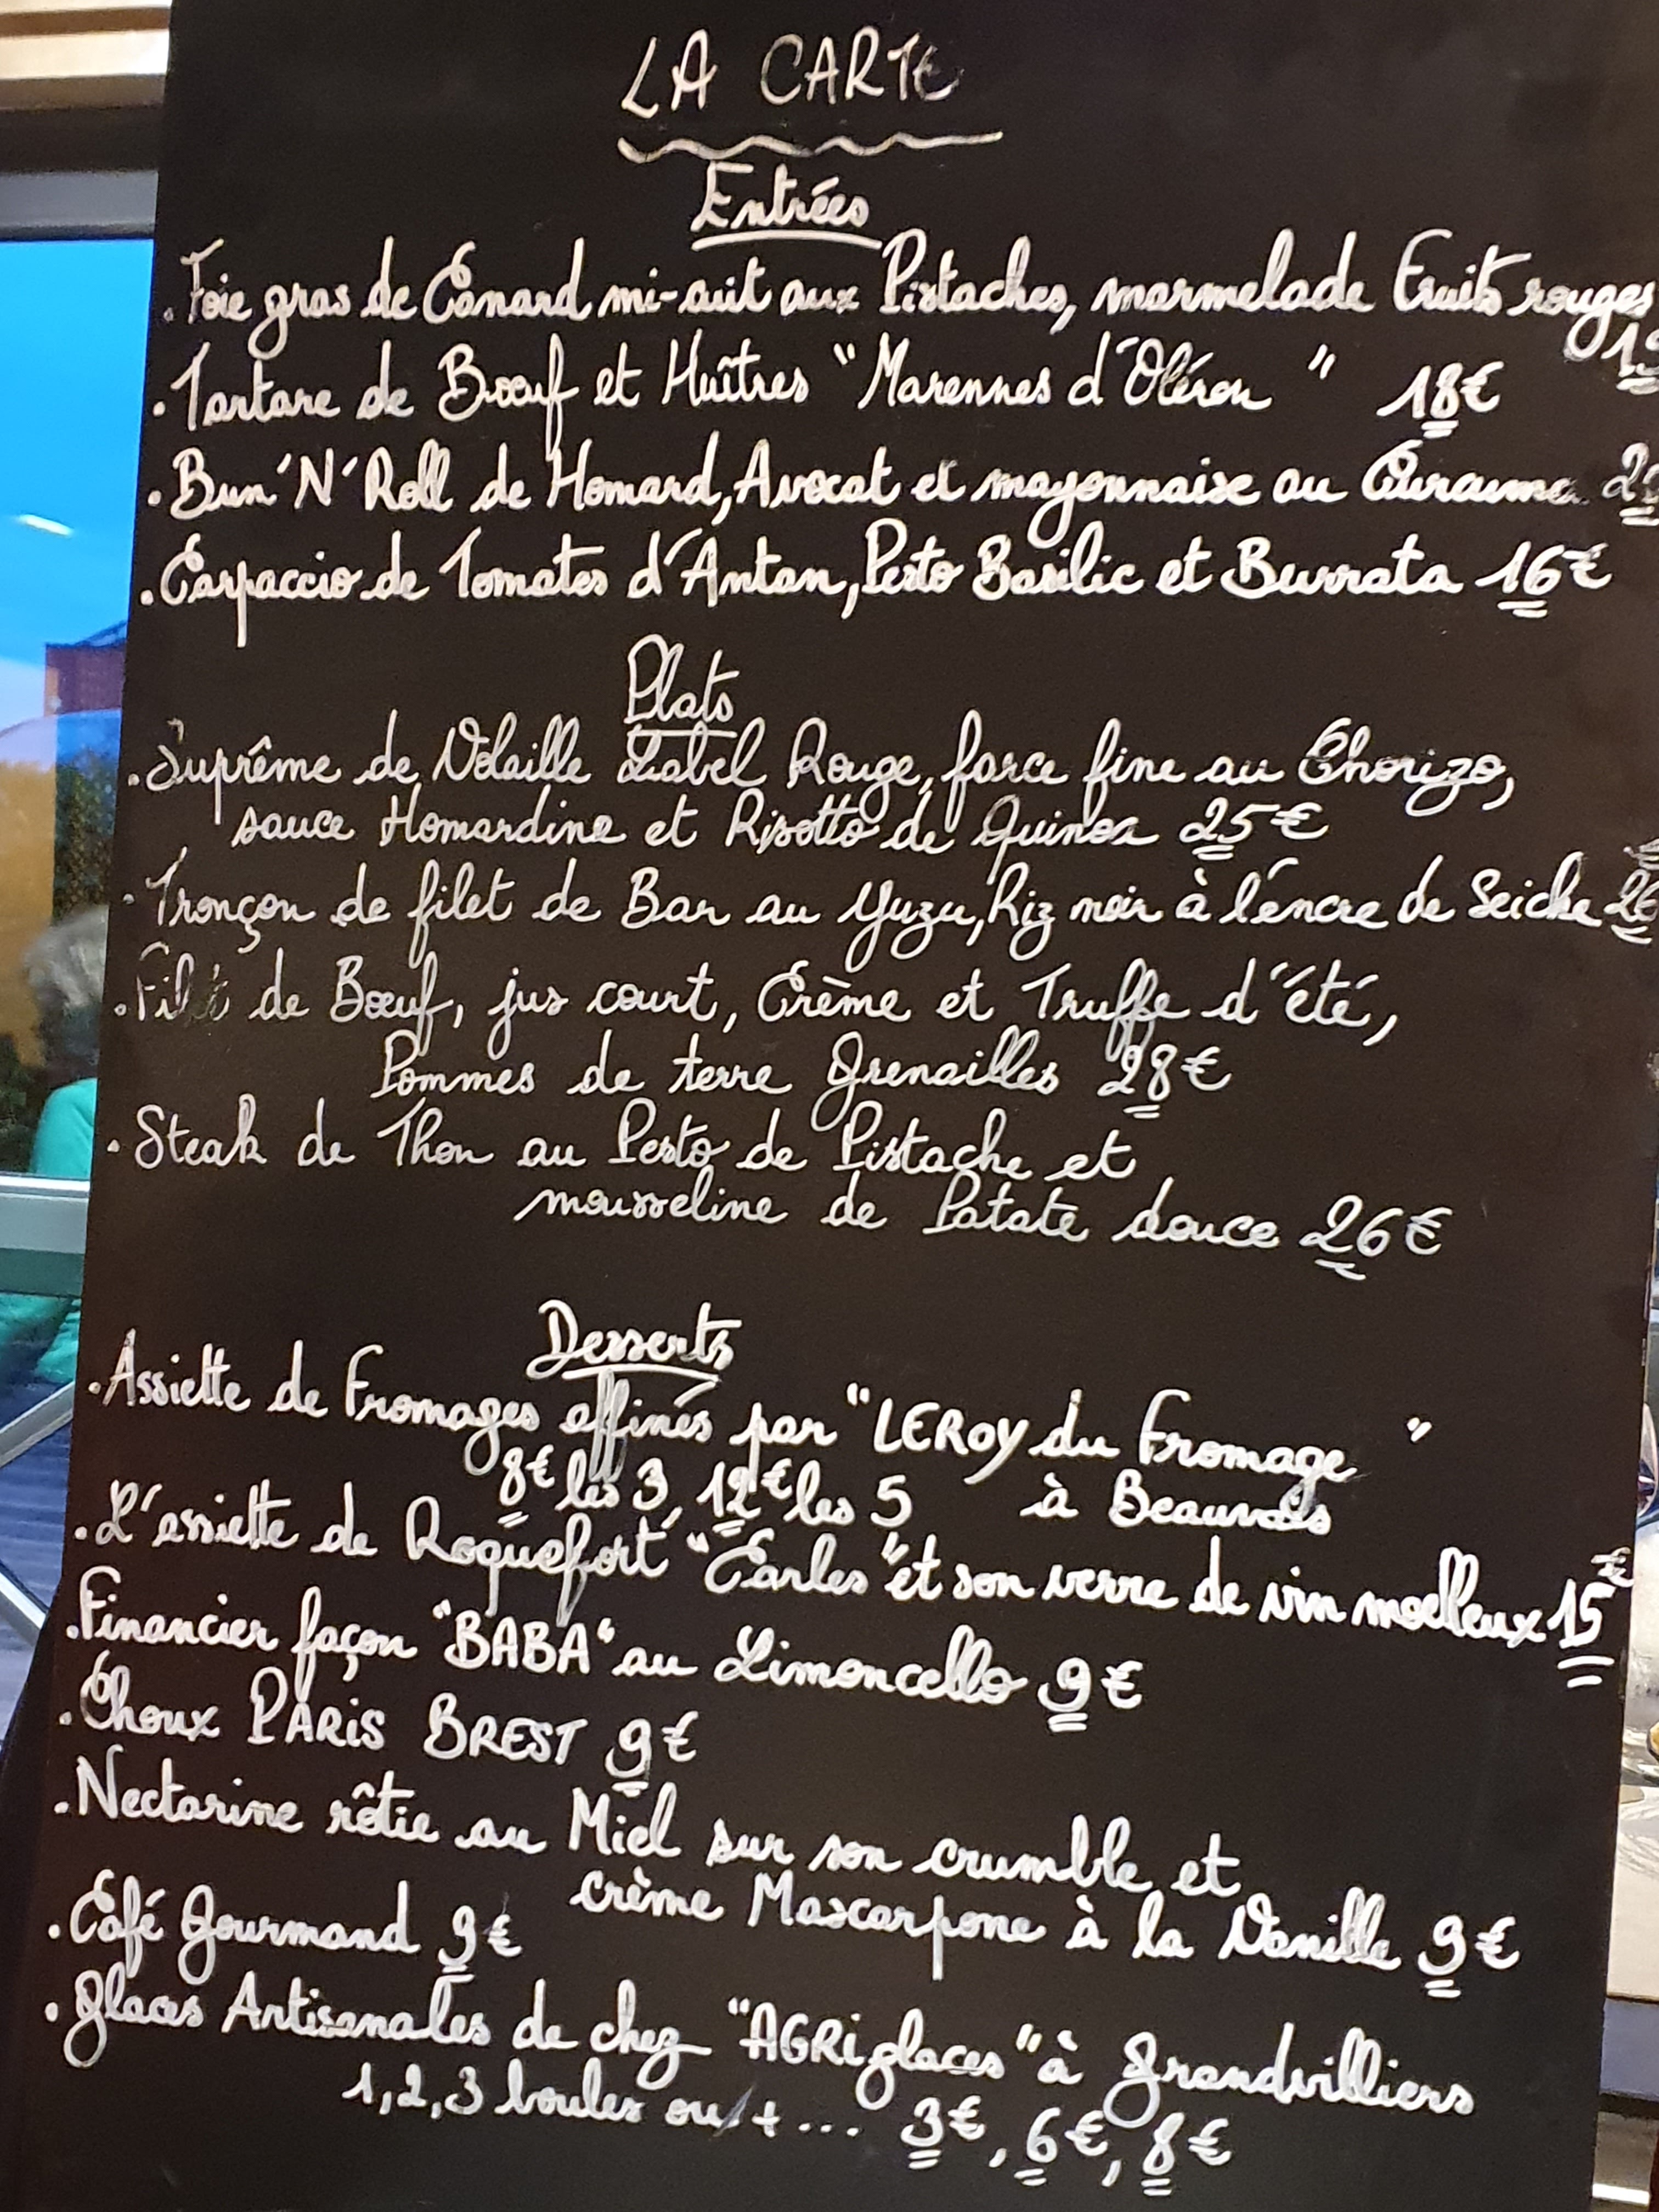 LA CARTE
Entrées
. Foie gras de Canard mi-cuit aux Pistaches, marmelade Fruits rouges
. Tartare de Bœuf et Huîtres "Marennes d'Oléron " 18€
. Bun'N'Roll de Homard, Avocat et mayonnaise au Curcuma
. Carpaccio de Tomates d'Antan, Pesto Basilic et Burrata 16€
Plats
. Suprême de Volaille Label Rouge, farce fine au Chorizo,
sauce Homardine et Risotto de Quinoa 25€
. Tronçon de filet de Bar au Yuzu, Riz noir à l'encre de Seiche 26
. Filet de Bœuf, jus court, Crème et Truffe d'été,
Pommes de terre Grenailles 28€
. Steak de Thon au Pesto de Pistache et
mousseline de Patate douce 26€
Desserts
. Assiette de Fromages affinés par "LEROY du Fromage "
8€ les 3, 12€ les 5 à Beauvais
. L'assiette de Roquefort "Carles" et son verre de vin moelleux 15€
. Financier façon "BABA" au Limoncello 9€
. Choux PARIS BREST 9€
. Nectarine rôtie au Miel sur son crumble et
crème Mascarpone à la Vanille 9€
. Café Gourmand 9€
. Glaces Artisanales de chez "AGRiglaces" à Grandvilliers
1, 2, 3 boules ou + ... 3€, 6€, 8€